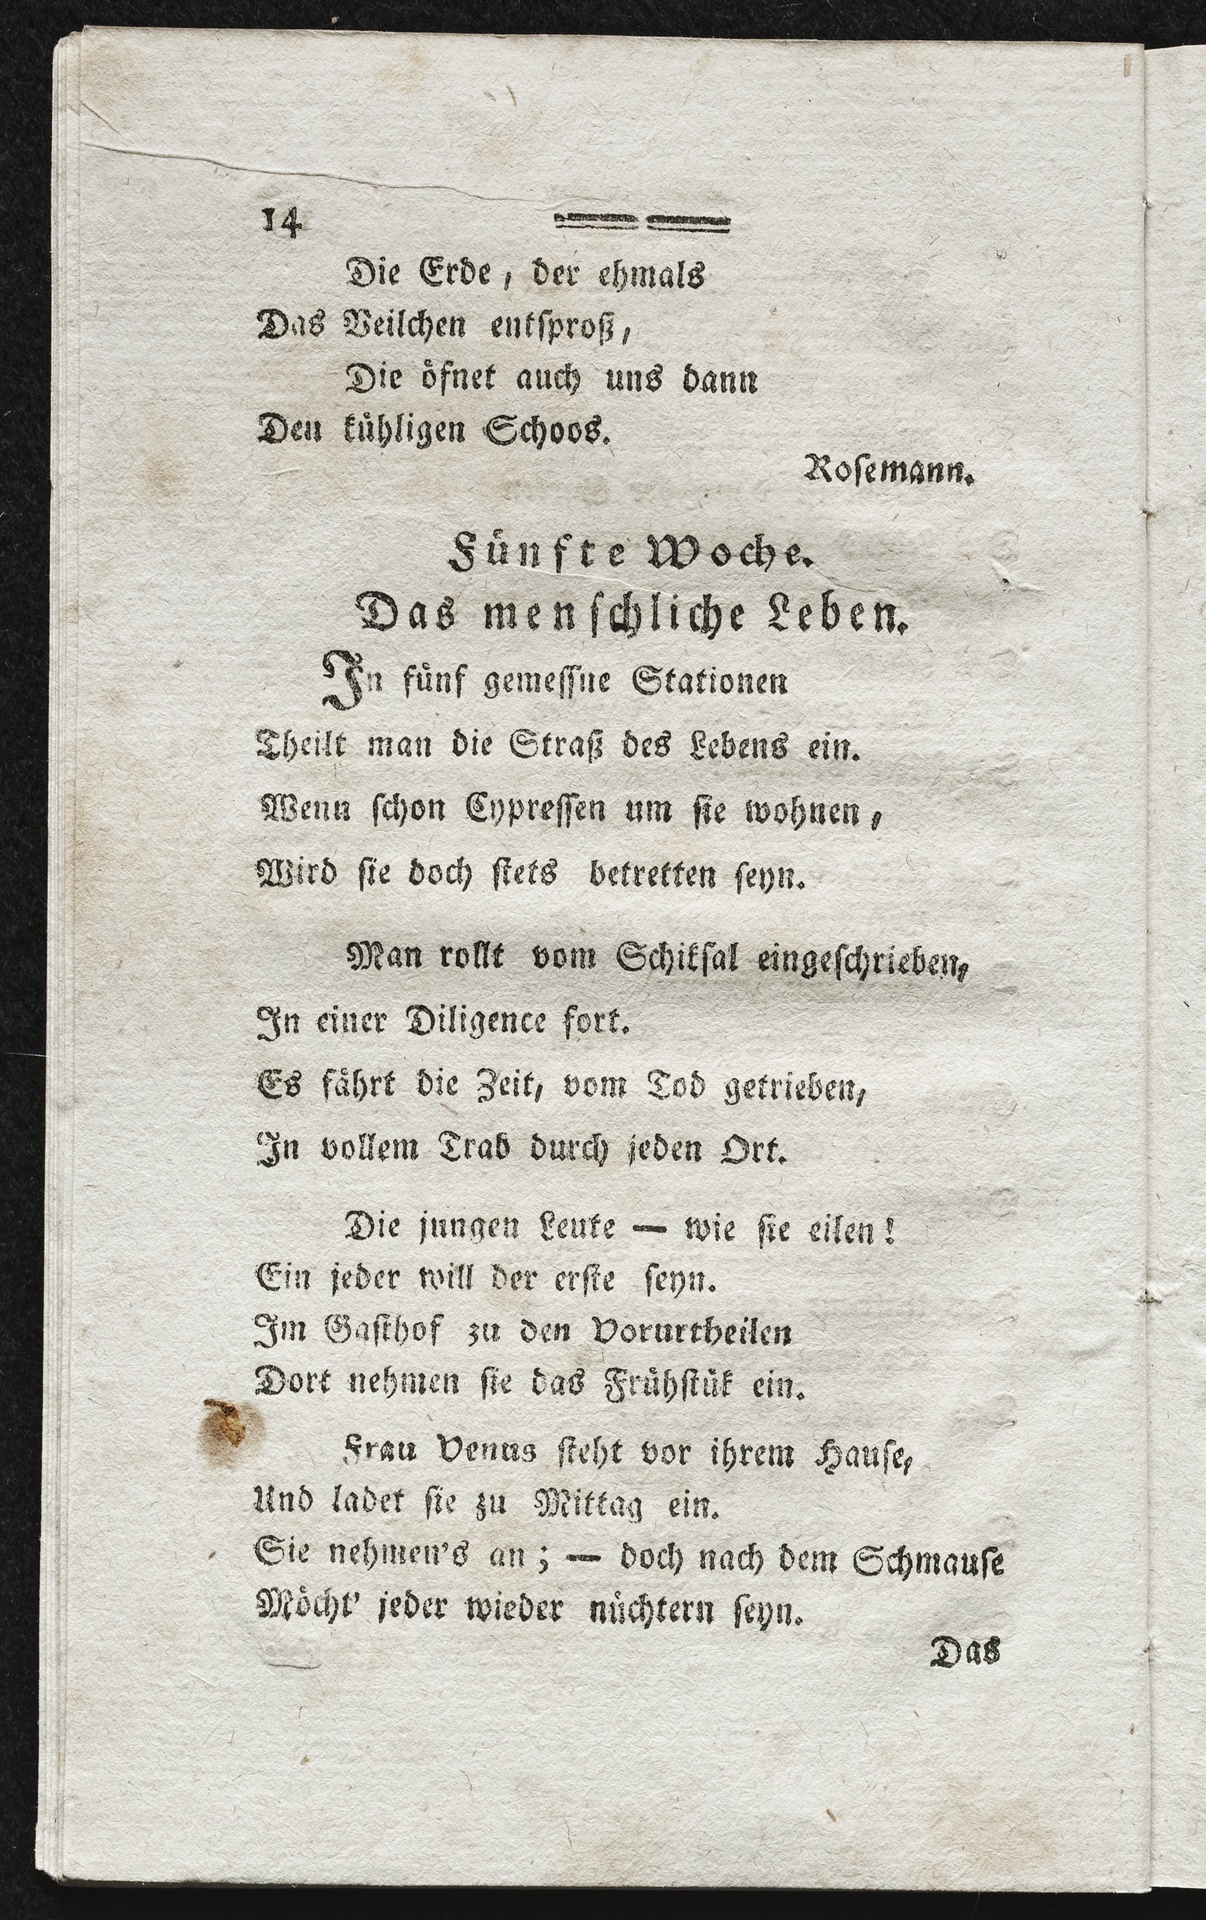 14
Die Erde, der ehmals
Das Veilchen entſproß,
Die öfnet auch uns dann
Den kühligen Schoos.
Roſemann.
Fünfte Woche.
Das menſchliche Leben.
In fünf gemeſſne Stationen
Theilt man die Straß des Lebens ein.
Wenn ſchon Cypreſſen um ſie wohnen,
Wird ſie doch ſtets betretten ſeyn.
Man rollt vom Schikſal eingeſchrieben,
In einer Diligence fort.
Es fährt die Zeit, vom Tod getrieben,
In vollem Trab durch jeden Ort.
Die jungen Leute — wie ſie eilen!
Ein jeder will der erſte ſeyn.
Im Gaſthof zu den Vorurtheilen
Dort nehmen ſie das Frühſtük ein.
Frau Venus ſteht vor ihrem Hauſe,
Und ladet ſie zu Mittag ein.
Sie nehmen's an; — doch nach dem Schmauſe
Möcht' jeder wieder nüchtern ſeyn.
Das